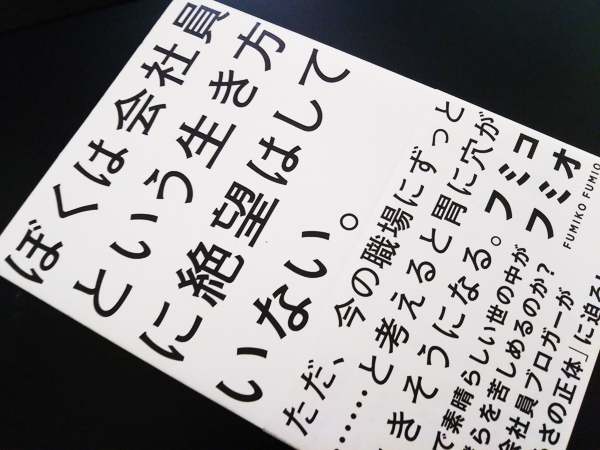 ぼくは会社員
という生き方
に絶望はして
いない。
ただ、今の職場にずっと
……と考えると胃に穴が
きそうになる。
フミコ
フミオ
FUMIKO FUMIO
で素晴らしい世の中が
らを苦しめるのか?
会社員ブロガーが
さの正体」に迫る!